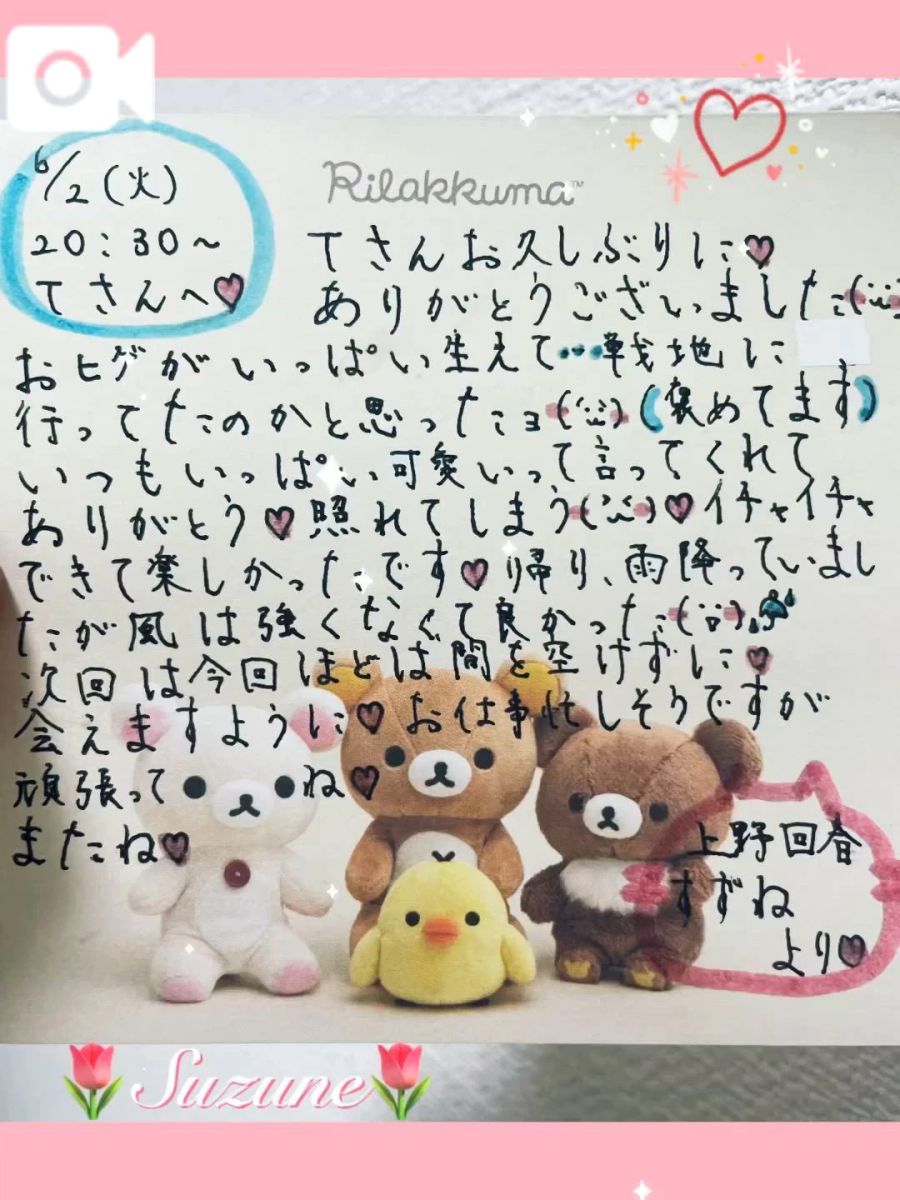 6/2(火)
20:30~
Tさんへ♥
Rilakkuma™
Tさんお久しぶりに♥
ありがとうございました
おヒゲがいっぱい生えて…戦地に
行ってたのかと思ったョ(褒めてます)
いつもいっぱい可愛いって言ってくれて
ありがとう♥照れてしまう♥イチャイチャ
できて楽しかったです♥帰り、雨降っていまし
たが風は強くなくて良かった
次回は今回ほどは間を空けずに♥
会えますように♥お仕事忙しそうですが
頑張ってね♥
またね♥
上野回春
すずね
より♥
Suzune